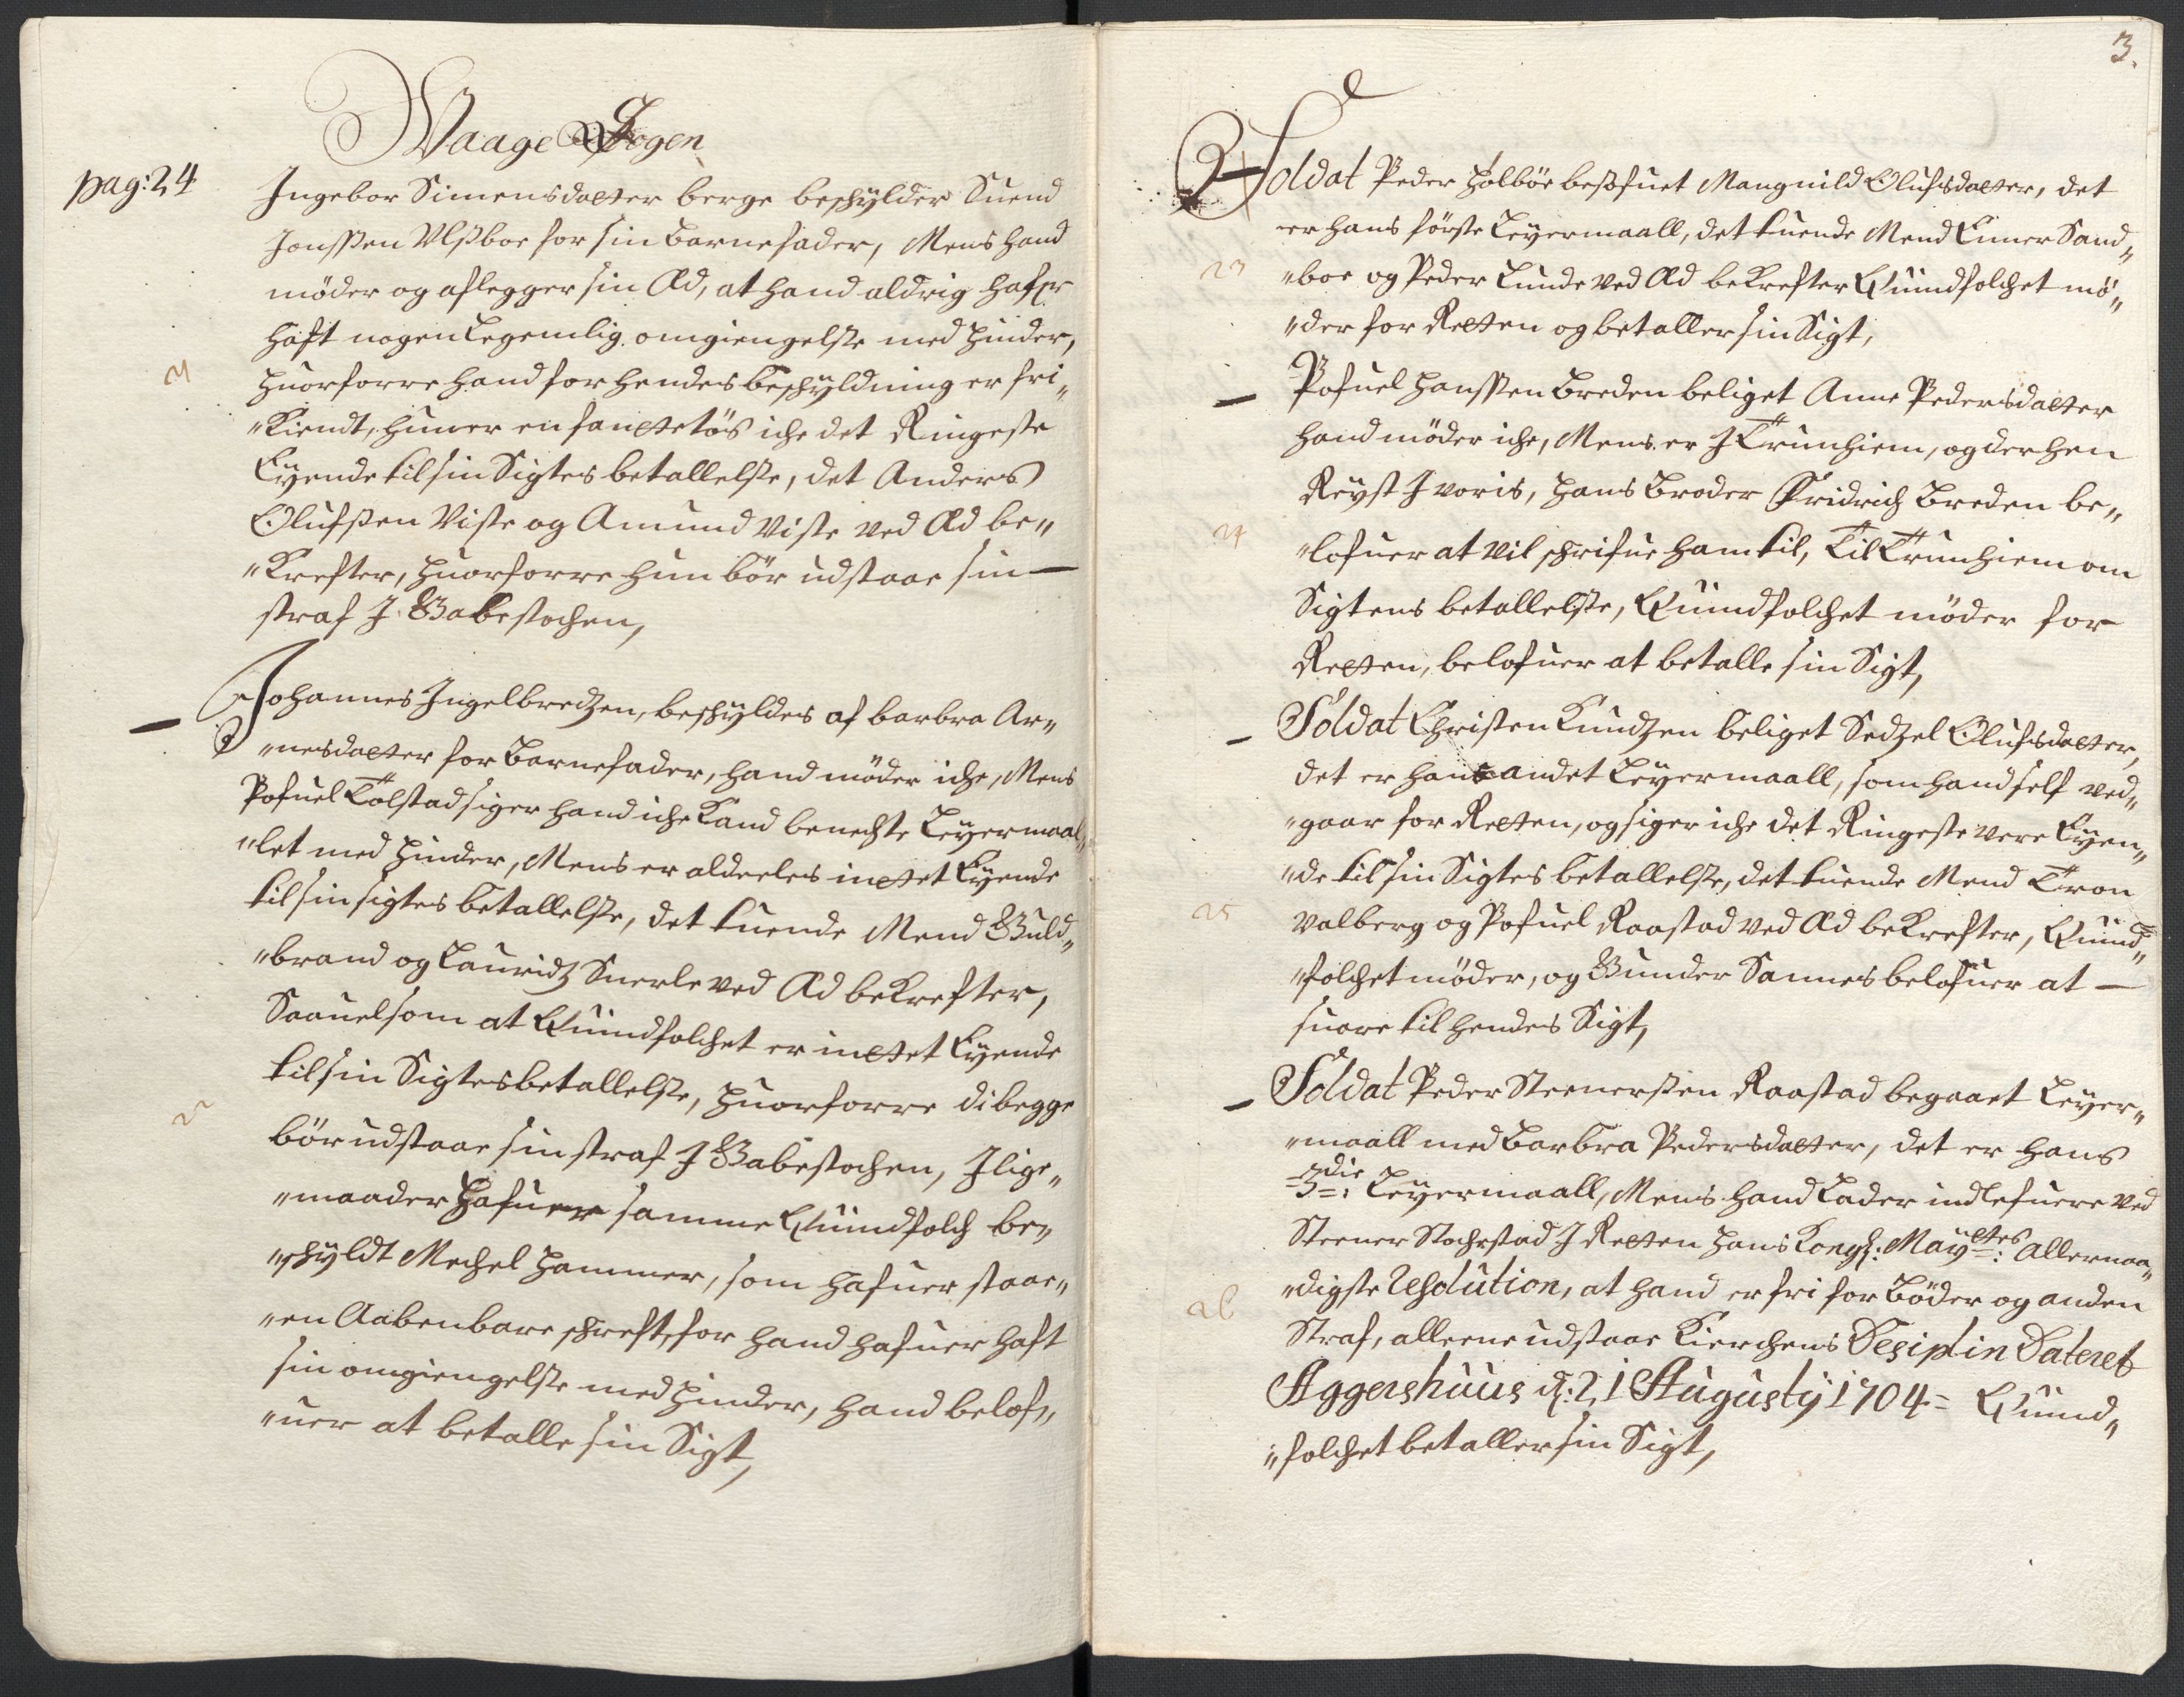 Waage Sogen
pag: 24
Ingebor Simensdatter berge beschylder Suend
Jonssen Ulsboe for sin barnefader, Mens hand
möder og aflegger sin Æd, at hand aldrig hafr
haft nogen Legemlig omgiengelse med hinder,
21
huorforre hand for hendes beschyldning er fri„
„kiendt, hun er en fanttetös iche det Ringeste
Eyende til sin Sigtes betallelse, det Anders
Olufsen Viste og Amund Viste ved Æd be„
„krefter, huorforre hun bör udstaae sin
straf J Gabestochen,
Johannes Ingelbredzen, beschyldes af barbra Ar„
„nesdatter for barnefader, hand möder iche, Mens
Pofuel Tolstad siger hand iche kand benechte Leyermaal„
„let med hinder, Mens er aldeeles intet Eyende
til sin sigtes betallelse, det tuende Mend Guld„
„brand og Lauridz Snerle ved Æd bekrefter,
Saauelsom at Quindfolchet er intet Eyende
til sin Sigtes betallelse, huorforre di begge
22
bör udstaae sin straf J Gabestochen, Jlige„
„maader hafuer samme Quindfolch be„
„schyldt Mechel Hammer, som hafuer staae„
„en Aabenbare schreft, for hand hafuer haft
sin omgiengelse med hinder, hand belof„
„uer at betalle sin Sigt,
3.
Soldat Peder Holböe besofuet Mangnild Olufsdatter, det
er hans förste Leyermaall, det tuende Mend Einer Sand„
23
„boe og Peder Lunde ved Æd bekrefter Quindfolchet mö„
„der for Retten og betaller sin Sigt,
Pofuel Hanssen Breden beliget Anne Pedersdatter
hand möder iche, Mens er J Trunhiem, og der hen
Reyst J voris, hans Broder Fridrich Breden be„
24
„lofuer at vil schrifue ham til, Til Trunhiem om
Sigtens betallelse, Quindfolchet möder for
Retten, belofuer at betalle sin Sigt,
Soldat Christen Knudzen beliget Sedzel Olufsdatter,
det er hans andet Leyermaall, som hand self ved„
„gaar for Retten, og siger iche det Ringeste vere Eyen„
„de til sin Sigtes betallelse, det tuende Mend Tron
25
Valberg og Pofuel Raastad ved Æd bekrefter, Quind„
„folchet möder, og Gunder Sannes belofuer at
suare til hendes Sigt,
Soldat Peder Steenersen Raastad begaaet Leyer„
„maall med Barbra Pedersdatter, det er hans
3die: Leyermaall, Mens hand Lader indlefuere ved
Steener Stochstad J Retten hans Kongl: Mayttes: Allernaa„
26
„digste Resolution, at hand er fri for Böder og anden
Straf, alleene udstaae Kierchens Desiplin Dateret
Aggershuus d: 21 Augusty 1704= Quind„
„folchet betaller sin Sigt,